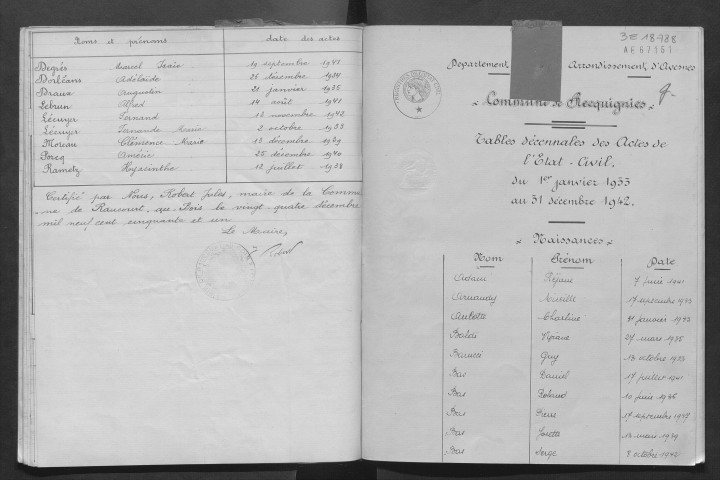 Noms et prénoms date des actes
Degrés Marcel 19 septembre 1941
Dorléans Adélaïde 26 décembre 1934
Draux Augustin 21 janvier 1935
Lebrun Alfred 14 août 1941
Lécuyer Fernand 12 novembre 1942
Lécuyer Fernande Marie 2 octobre 1933
Moreau Clémence Marie 13 décembre 1939
Porcq Aimée 25 décembre 1940
Rametz Hyacinthe 12 juillet 1938
Certifié par Nous, Robert Jules, maire de la Commu
-ne de Raucourt, au Bois le vingt quatre décembre
mil neuf cent cinquante et un
Le Maire,
3E 18738
AE67151
Département Arrondissement d'Avesnes
« Commune de Recquignies »
Tables décennales des Actes de
l'Etat-Civil.
du 1er janvier 1933
au 31 décembre 1942.
« Naissances »
Nom Prénom Date
Adam Réjane 7 juin 1941
Mireille 17 septembre 1933
Charline janvier 1943
27 mars 1938
Guy 13 octobre 1933
Bar Daniel 17 juillet 1941
Bas Roland 10 juin 1936
Bas Pierre 17 septembre 1937
Bas Josette 13 mars 1939
Bas Serge 8 octobre 1942